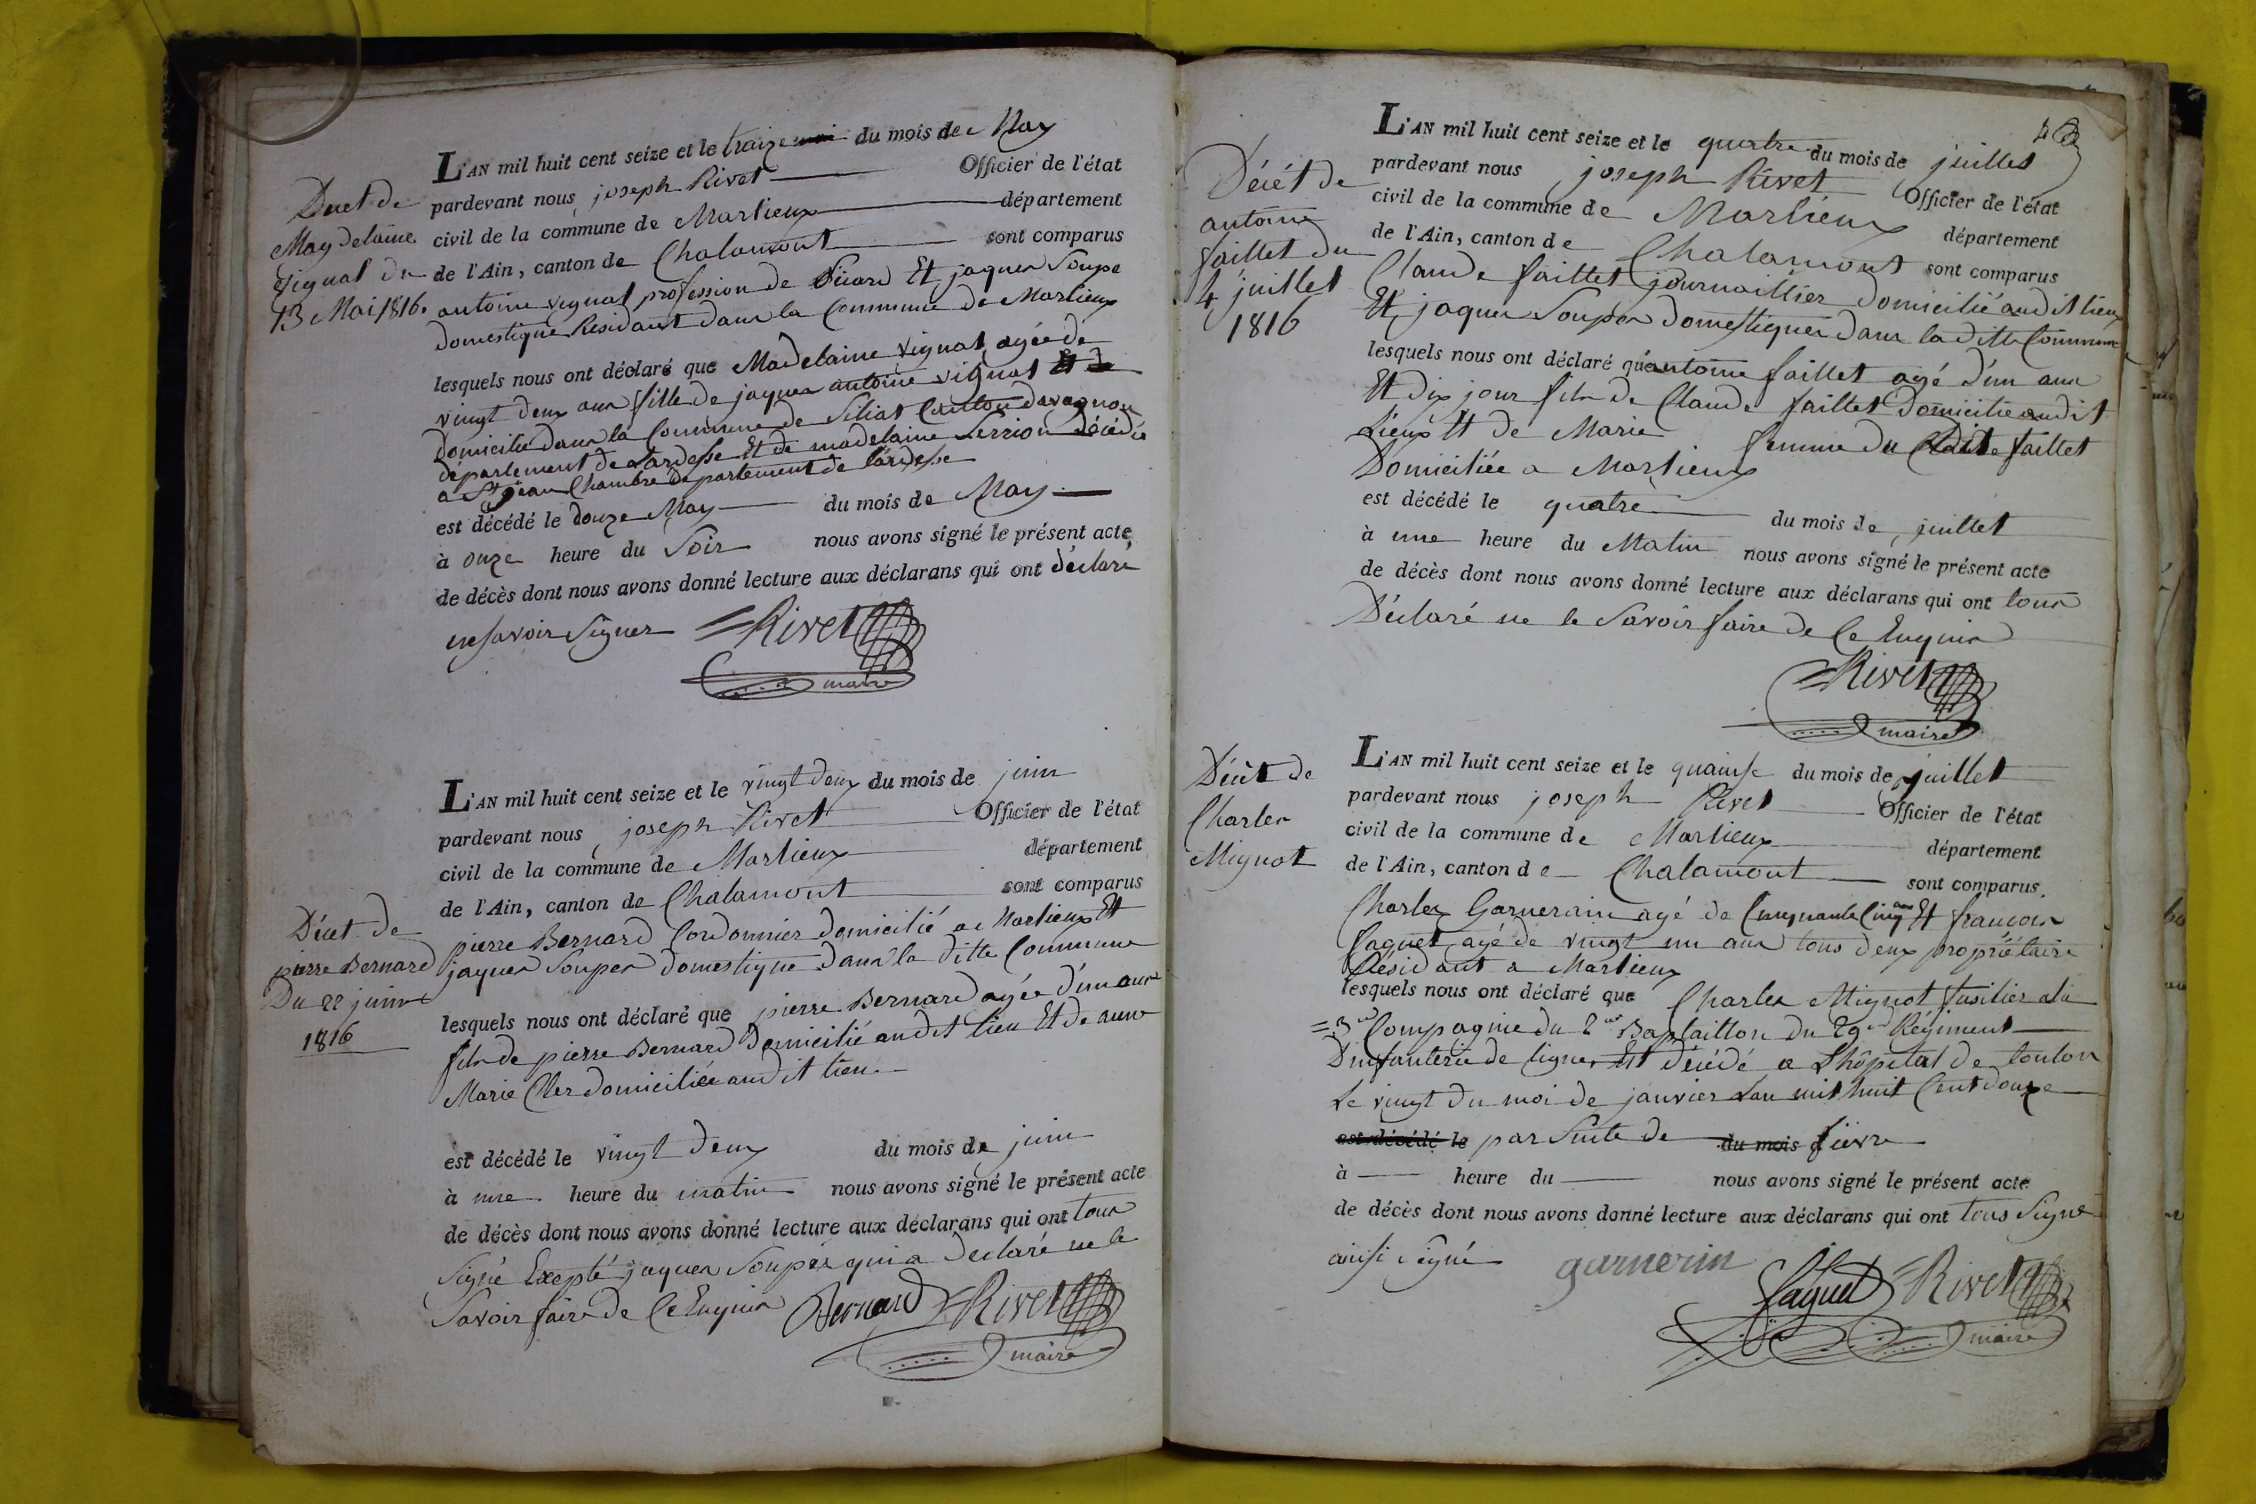 L'AN mil huit cent seize et le traize du mois de May
pardevant nous joseph Rivet Officier de l'état
civil de la commune de Marlieux département
de l'Ain, canton de Chalamont sont comparus
antoine vignat profession de Et jaques Soupe
domestique Residant dans la Commune de Marlieux
lesquels nous ont déclaré que Madelaine vignat agée de
vingt deux ans fille de jaques antoine vignat
Domicilié dans la Commune de Siliat Canton davagnon
département de Lardesse Et de madelaine décédée
a St jean Chambre département de lardesse
est décédé le douze May du mois de May
à onze heure du Soir nous avons signé le présent acte
de décès dont nous avons donné lecture aux déclarans qui ont déclaré
ne savoir Signer Rivet
maire
Decet de
Magdelaine
vignat du
13 Mai 1816.
L'AN mil huit cent seize et le vingt deux du mois de juin
pardevant nous joseph Rivet Officier de l'état
civil de la commune de Marlieux département
de l'Ain, canton de Chalamont sont comparus
pierre Bernard Cordonnier domicilié a Marlieux Et
jaques Soupes domestique dans la ditte Commune
lesquels nous ont déclaré que pierre Bernard agée d'un ans
fils de pierre Bernard Domicilié audit lieu Et de anne
Marie Cler domiciliée audit lieu
est décédé le vingt deux du mois de juin
à une heure du matin nous avons signé le présent acte
de décès dont nous avons donné lecture aux déclarans qui ont tous
Signé Exepté jaques Soupes qui a Declaré ne le
Savoir faire de Ce Enquis Bernard Rivet
maire
Décet de
pierre Bernard
Du 22 juin
1816
L'AN mil huit cent seize et le quatre du mois de juillet
pardevant nous joseph Rivet Officier de l'état
civil de la commune de Marlieux département
de l'Ain, canton de Chalamont sont comparus
Claude faillet journaillier domicilié audit lieu
Et jaques Soupes Domestiques dans la ditte Commune
lesquels nous ont déclaré que antoine faillet agé d'un ans
Et dix jour fils de Claude faillet Domicilié audit
Lieux Et de Marie femme du faillet
Domiciliée a Marlieux
est décédé le quatre du mois de juillet
à une heure du Matin nous avons signé le présent acte
de décès dont nous avons donné lecture aux déclarans qui ont tous
Déclaré ne le Savoir faire de Ce Enquis
Rivet
maire
Décét de
antoine
faillet du
4 juillet
1816
L'AN mil huit cent seize et le quainse du mois de juillet
pardevant nous joseph Rivet Officier de l'état
civil de la commune de Marlieux département
de l'Ain, canton de Chalamont sont comparus
Charles Garnerain agé de Cinquante Cinq ans Et françois
faguet agé de vingt un ans tous deux propriétaire
Résidant a Marlieux
lesquels nous ont déclaré que Charles Mignot fusilier a la
3me Compagnie du 2me Battaillon du 29me Régiment
Dinfanterie de ligne, Est décédé a Lhôpital de toulon
Le vingt du moi de janvier Lan mil huit Cent douze
est décédé le par Suite de du mois fièvre
à heure du nous avons signé le présent acte
de décès dont nous avons donné lecture aux déclarans qui ont tous Signé
ainsi signé garnerin
faguet Rivet
maire
Décèt de
Charles
Mignot